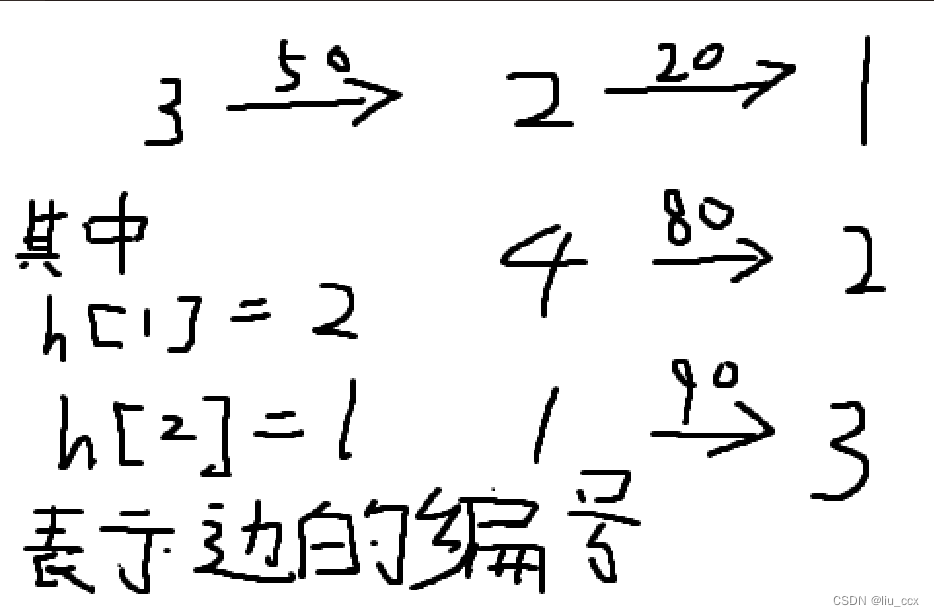 3 50→ 2 20→ 1
其中
4 80→ 2
h[1]=2
1 90→ 3
h[2]=1
表示边的编号
CSDN @liu_ccx